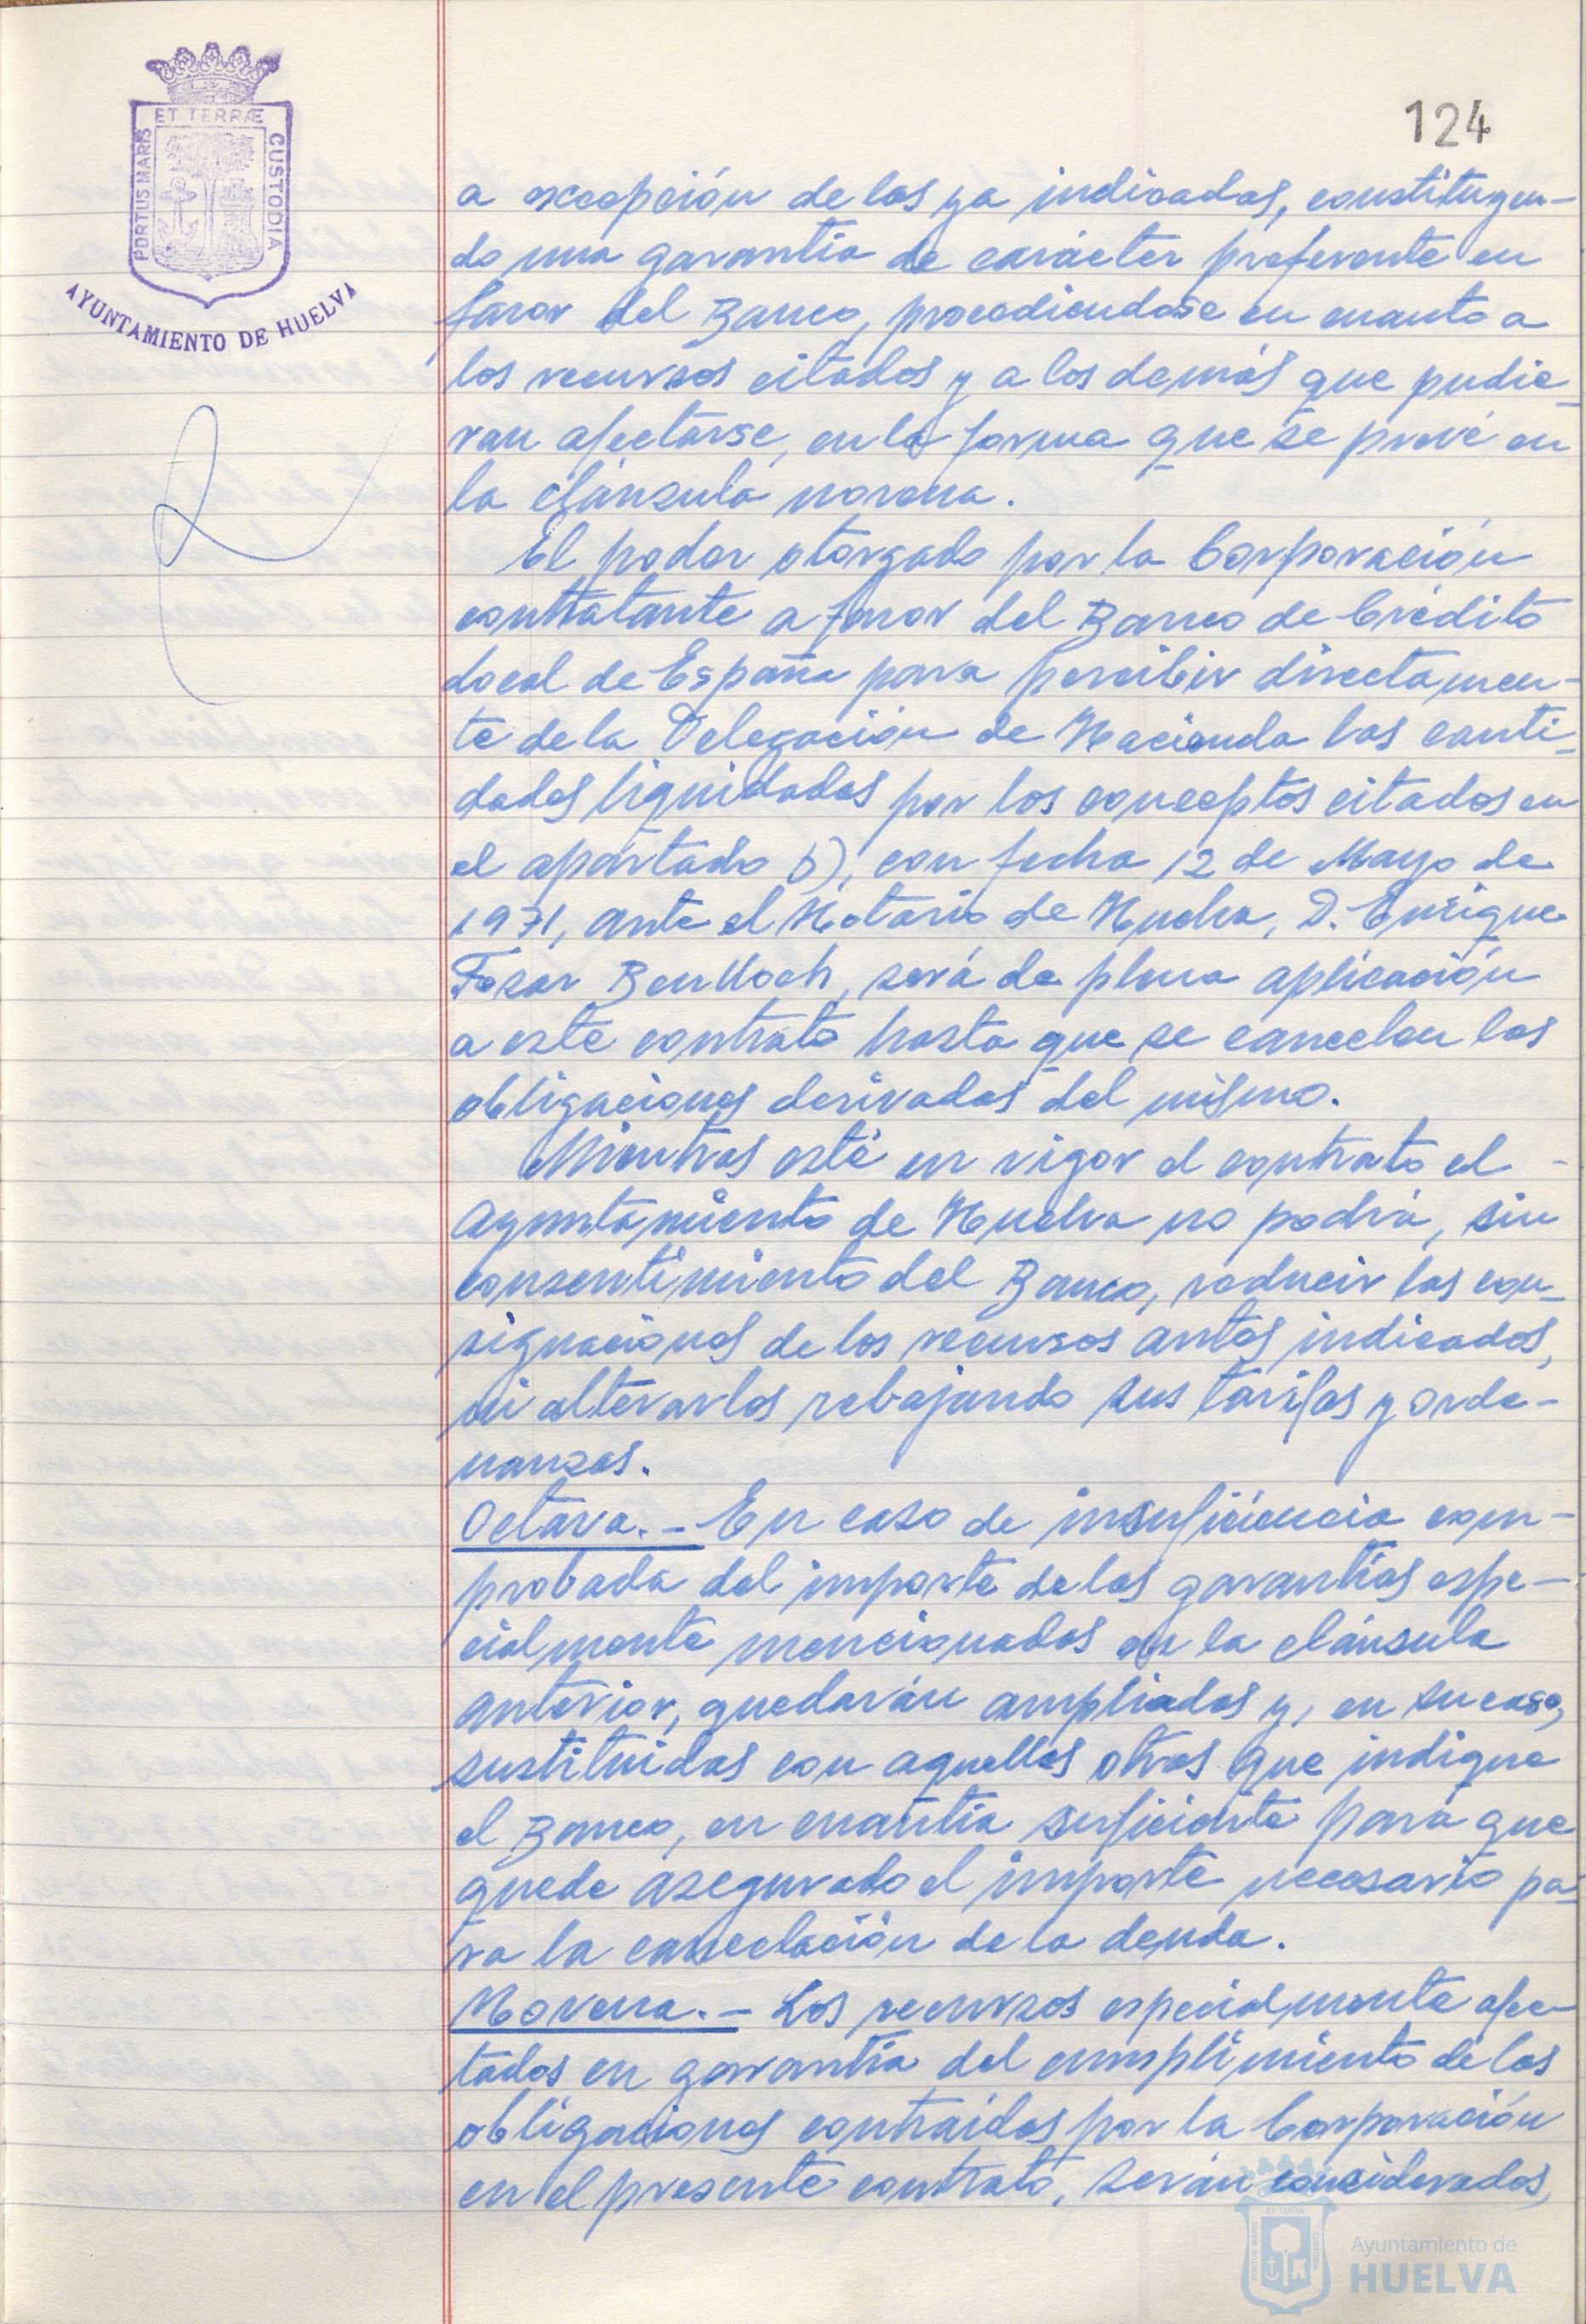 124
ET TERRÆ
PORTUS MARIS
CUSTODIA
AYUNTAMIENTO DE HUELVA
a excepción de las ya indicadas, constituyen-
do una garantía de carácter preferente en
favor del Banco, procediendose en cuanto a
los recursos citados y a los demás que pudie-
ran afectarse, en la forma que se prevé en
la cláusula novena.
El poder otorgado por la Corporación
contratante a favor del Banco de Crédito
Local de España para percibir directamen-
te de la Delegación de Hacienda las canti-
dades liquidadas por los conceptos citados en
el apartado b), con fecha 12 de Mayo de
1971, ante el Notario de Huelva, D. Enrique
Fosar Benlloch, será de plena aplicación
a este contrato hasta que se cancelen las
obligaciones derivadas del mismo.
Mientras esté en vigor el contrato el -
Ayuntamiento de Huelva no podrá, sin
consentimiento del Banco, reducir las con-
signaciones de los recursos antes indicados,
ni alterarlos rebajando sus tarifas y orde-
nanzas.
Octava.- En caso de insuficiencia com-
probada del importe de las garantías espe-
cialmente mencionadas en la cláusula
anterior, quedarán ampliadas y, en su caso,
sustituidas con aquellas otras que indique
el Banco, en cuantía suficiente para que
quede asegurado el importe necesario pa-
ra la cancelación de la deuda.
Novena.- Los recursos especialmente afec-
tados en garantía del cumplimiento de las
obligaciones contraidas por la Corporación
en el presente contrato, serán considerados,
Ayuntamiento de
HUELVA